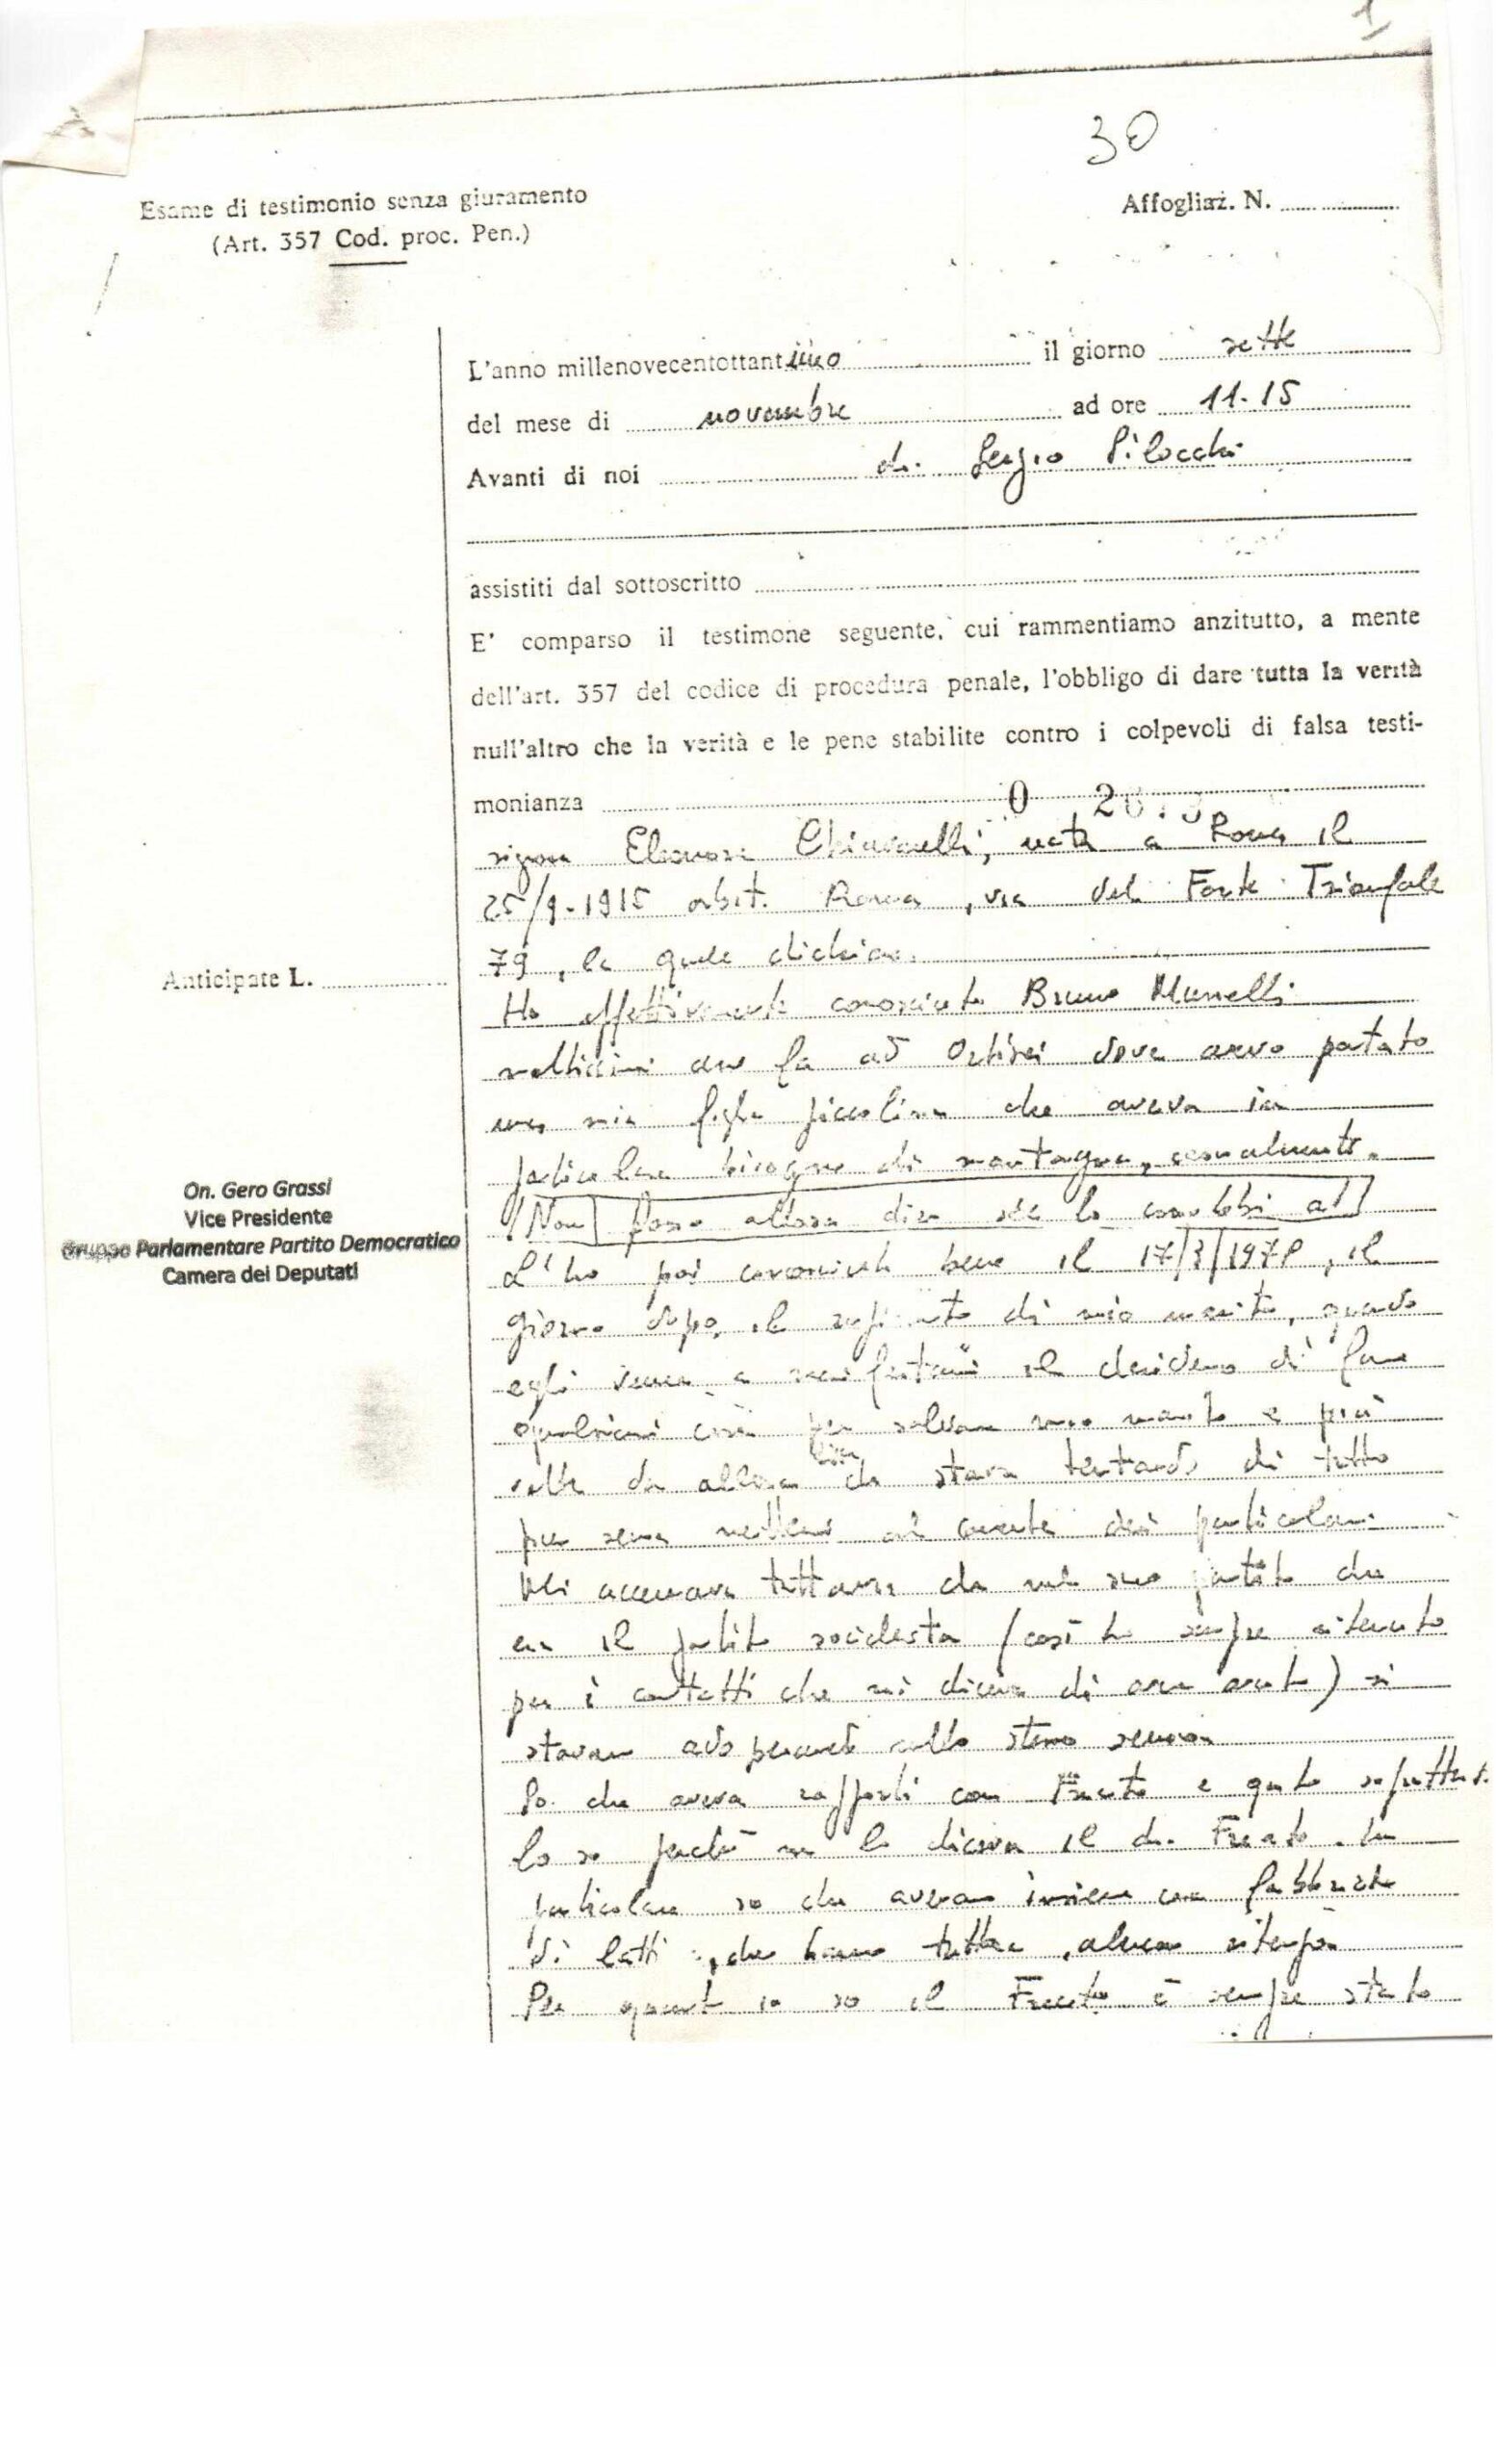 1
30
Esame di testimonio senza giuramento
(Art. 357 Cod. proc. Pen.)
Affogliaz. N.
L'anno millenovecentottantuno il giorno sette
del mese di novembre ad ore 11.15
Avanti di noi dr. Sergio Pilocchi
assistiti dal sottoscritto
E' comparso il testimone seguente, cui rammentiamo anzitutto, a mente
dell'art. 357 del codice di procedura penale, l'obbligo di dare tutta la verità
null'altro che la verità e le pene stabilite contro i colpevoli di falsa testi-
monianza
signora Eleonora Chiavarelli, nata a Roma il
25/9-1915 abit. Roma, via del Forte Trionfale
79, la quale dichiara.
Anticipate L.
Ho effettivamente conosciuto Bruno
moltissimi anni fa ad Ortisei dove avevo portato
una mia figlia piccolina che aveva in
particolare bisogno di montagna, casualmente.
Non posso allora dire se lo conobbi al
On. Gero Grassi
Vice Presidente
Gruppo Parlamentare Partito Democratico
Camera dei Deputati
L'ho poi conosciuto bene il 17/3/1978, il
giorno dopo il rapimento di mio marito, quando
egli venne a manifestarmi il desiderio di fare
qualsiasi cosa per salvare mio marito e più
volte da allora disse che stava tentando di tutto
pur senza mettermi al corrente dei particolari.
Mi accennava tuttavia che nel suo partito che
era il partito socialista (così ho sempre ritenuto
per i contatti che mi diceva di aver avuto) si
stavano adoperando nello stesso senso.
So che aveva rapporti con Freato e questo
lo so perché me lo diceva il dr. Freato. In
particolare so che avevano insieme una fabbrica
di letti, che hanno tuttora, almeno ritengo.
Per quanto io so il Freato è sempre stato